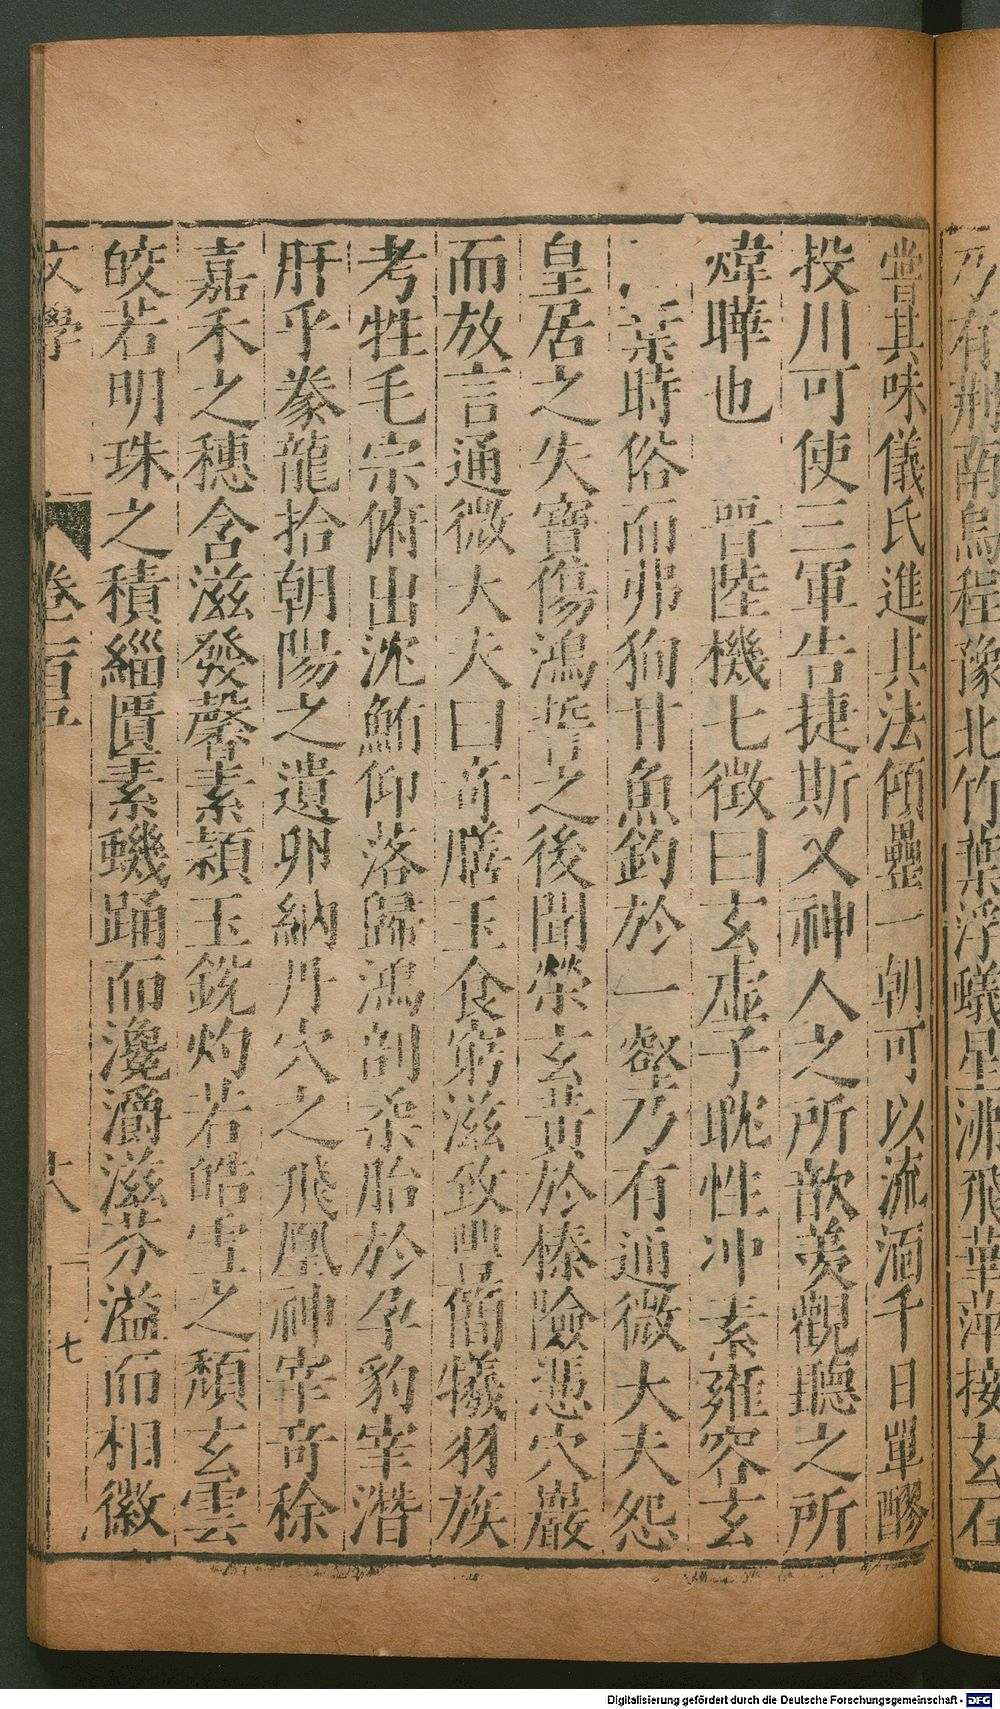 乃有荊南烏程豫北竹葉浮蟻星沸飛華萍接玄石
嘗其味儀氏進其法傾罍一朝可以流湎千日單醪
投川可使三軍告捷斯又神人之所歆羨觀聽之所
煒曄也　晉陸機七徵曰玄虛子耽性冲素雍容玄
葉時俗而弗徇甘魚釣於一壑乃有通微大夫怨
皇居之失寶傷鴻誓之後聞榮玄黃於榛險憑穴巖
而放言通微大夫曰奇膳玉食窮滋致豐簡犧羽族
考牲毛宗俯出沈鮪仰落歸鴻剖柔胎於孕豹宰潛
肝乎豢龍拾朝陽之遺卵納丹穴之飛凰神宰奇稌
嘉禾之穗含滋發馨素穎玉銳灼若皓雪之頹玄雲
皎若明珠之積緇匱素蟣踊而瀺灂滋芬溢而相徽
文學
卷一百五
十八
七
Digitalisierung gefördert durch die Deutsche Forschungsgemeinschaft - DFG